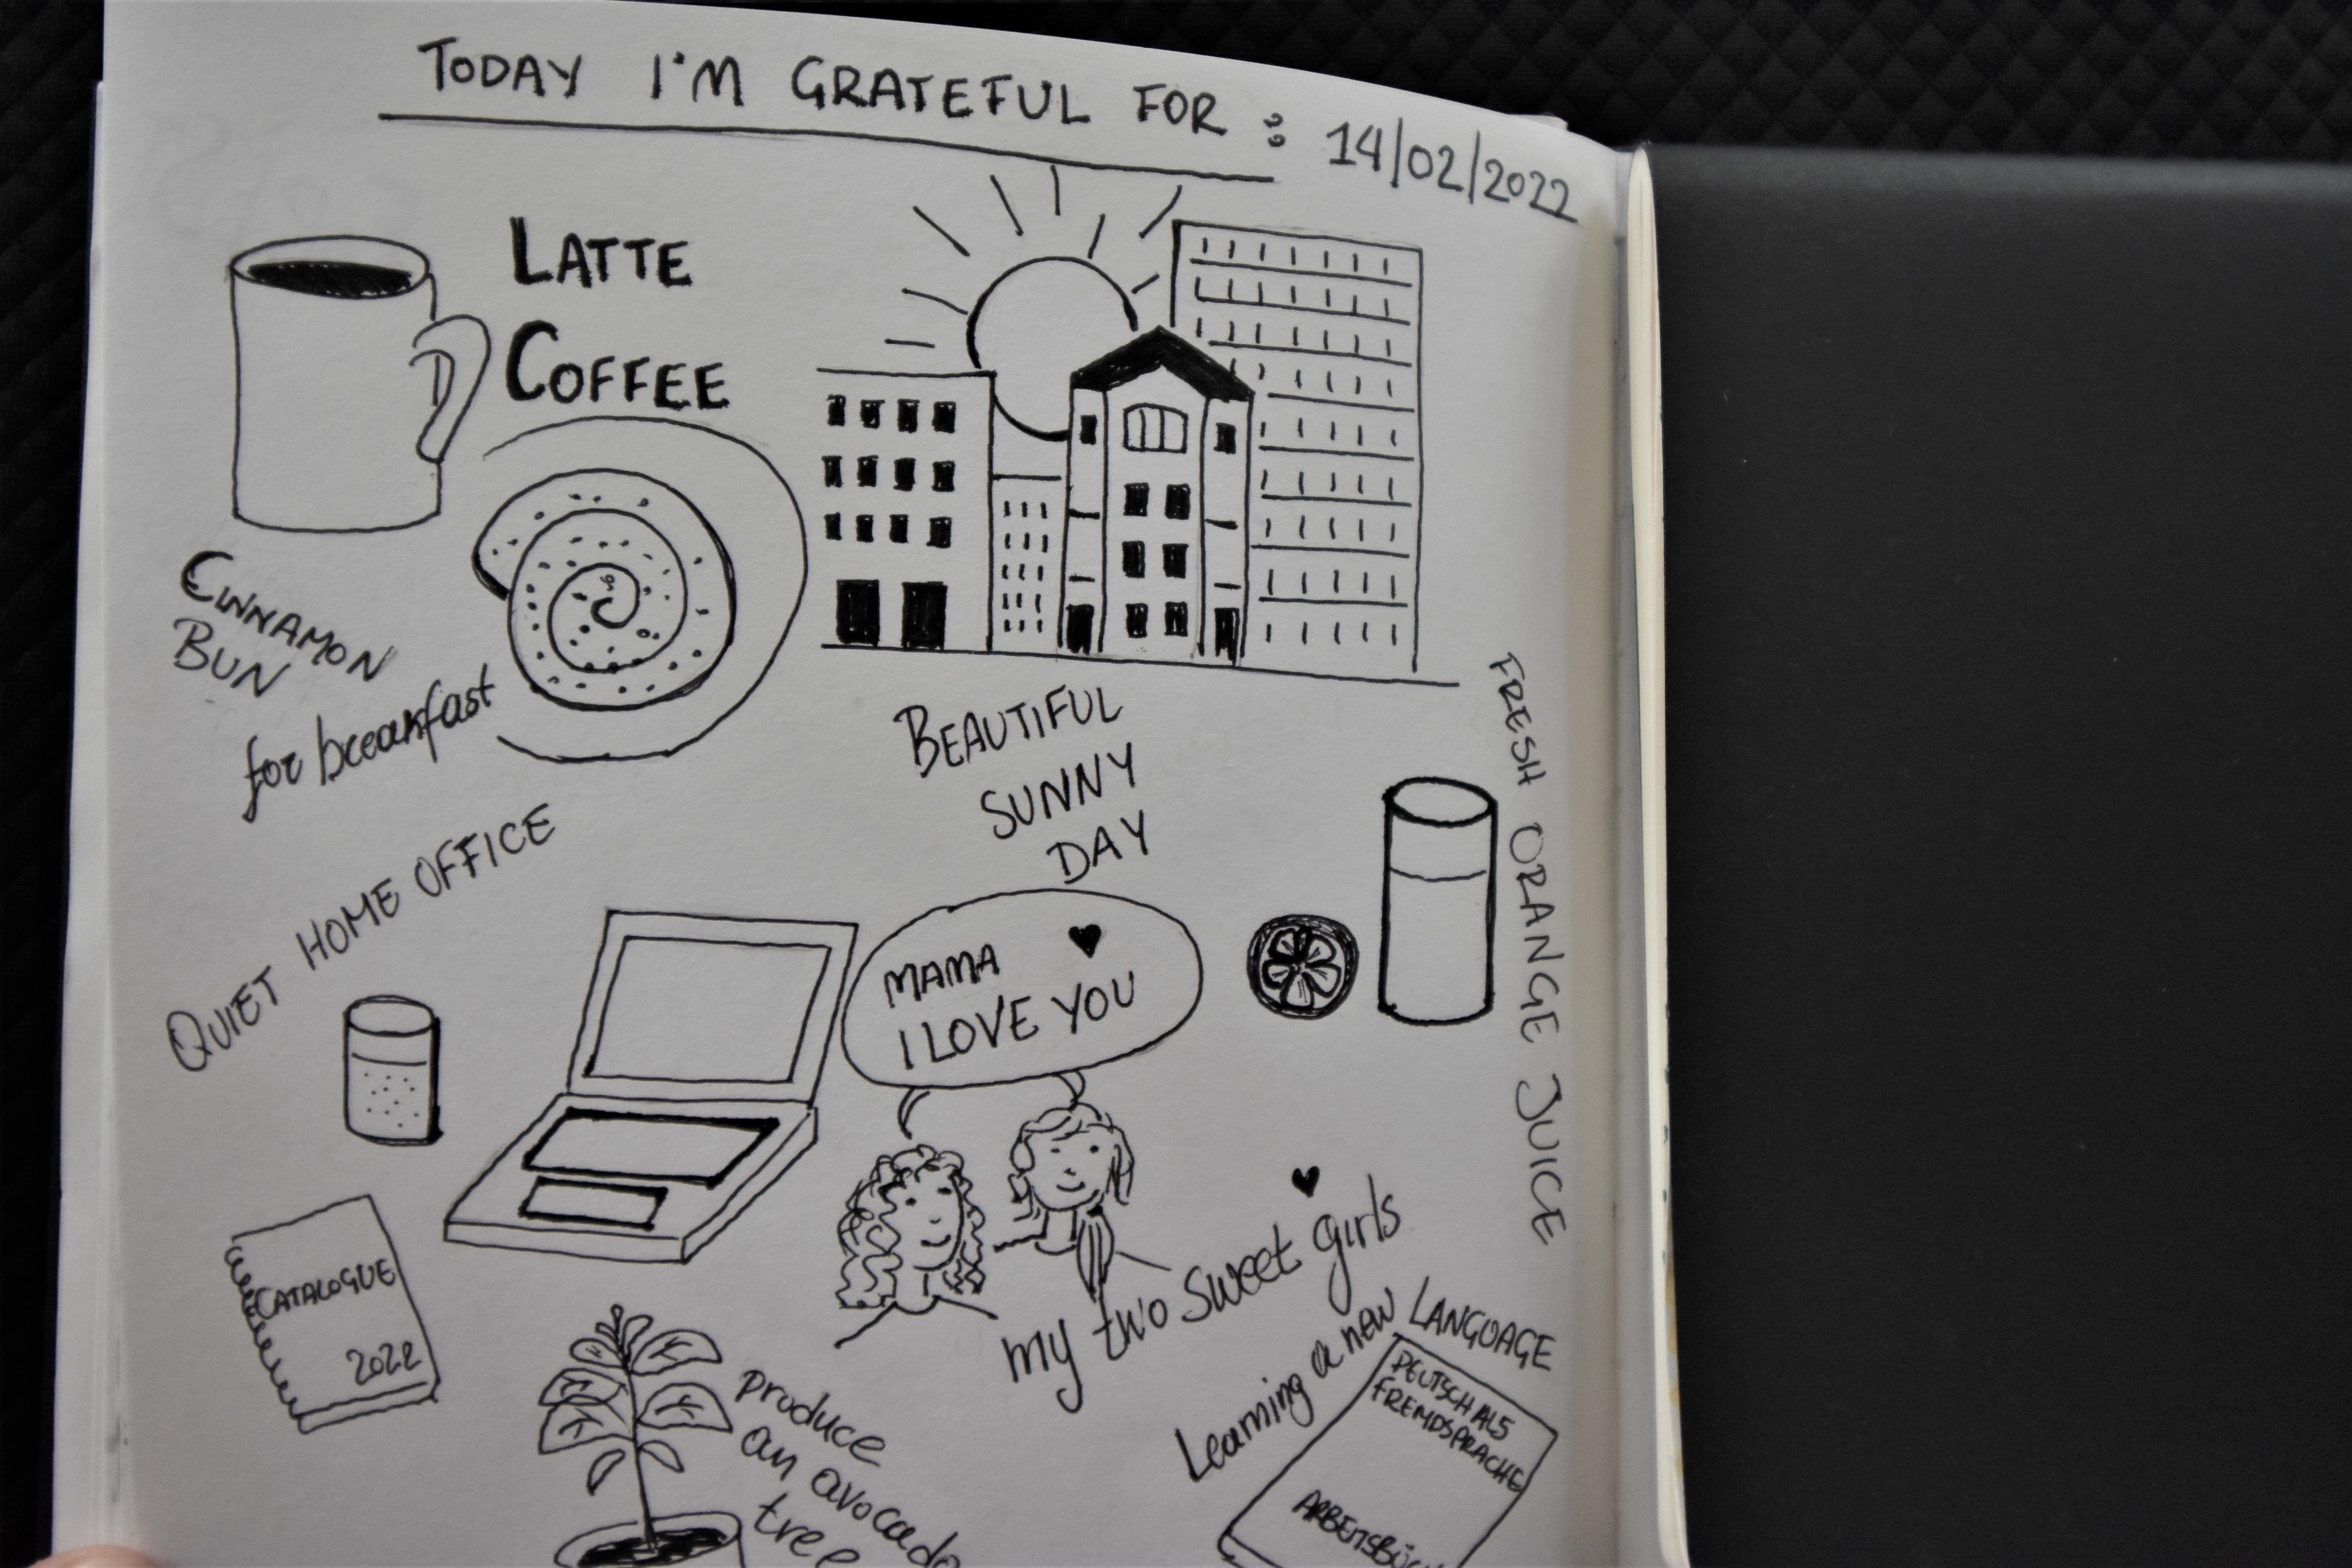 TODAY I'M GRATEFUL FOR : 14/02/2022
LATTE
COFFEE
CINNAMON
BUN
for breakfast
BEAUTIFUL
SUNNY
DAY
FRESH ORANGE JUICE
QUIET HOME OFFICE
MAMA
I LOVE YOU
my two sweet girls
CATALOGUE
2022
produce
an avocado
tree
Learning a new LANGUAGE
DEUTSCH ALS
FREMDSPRACHE